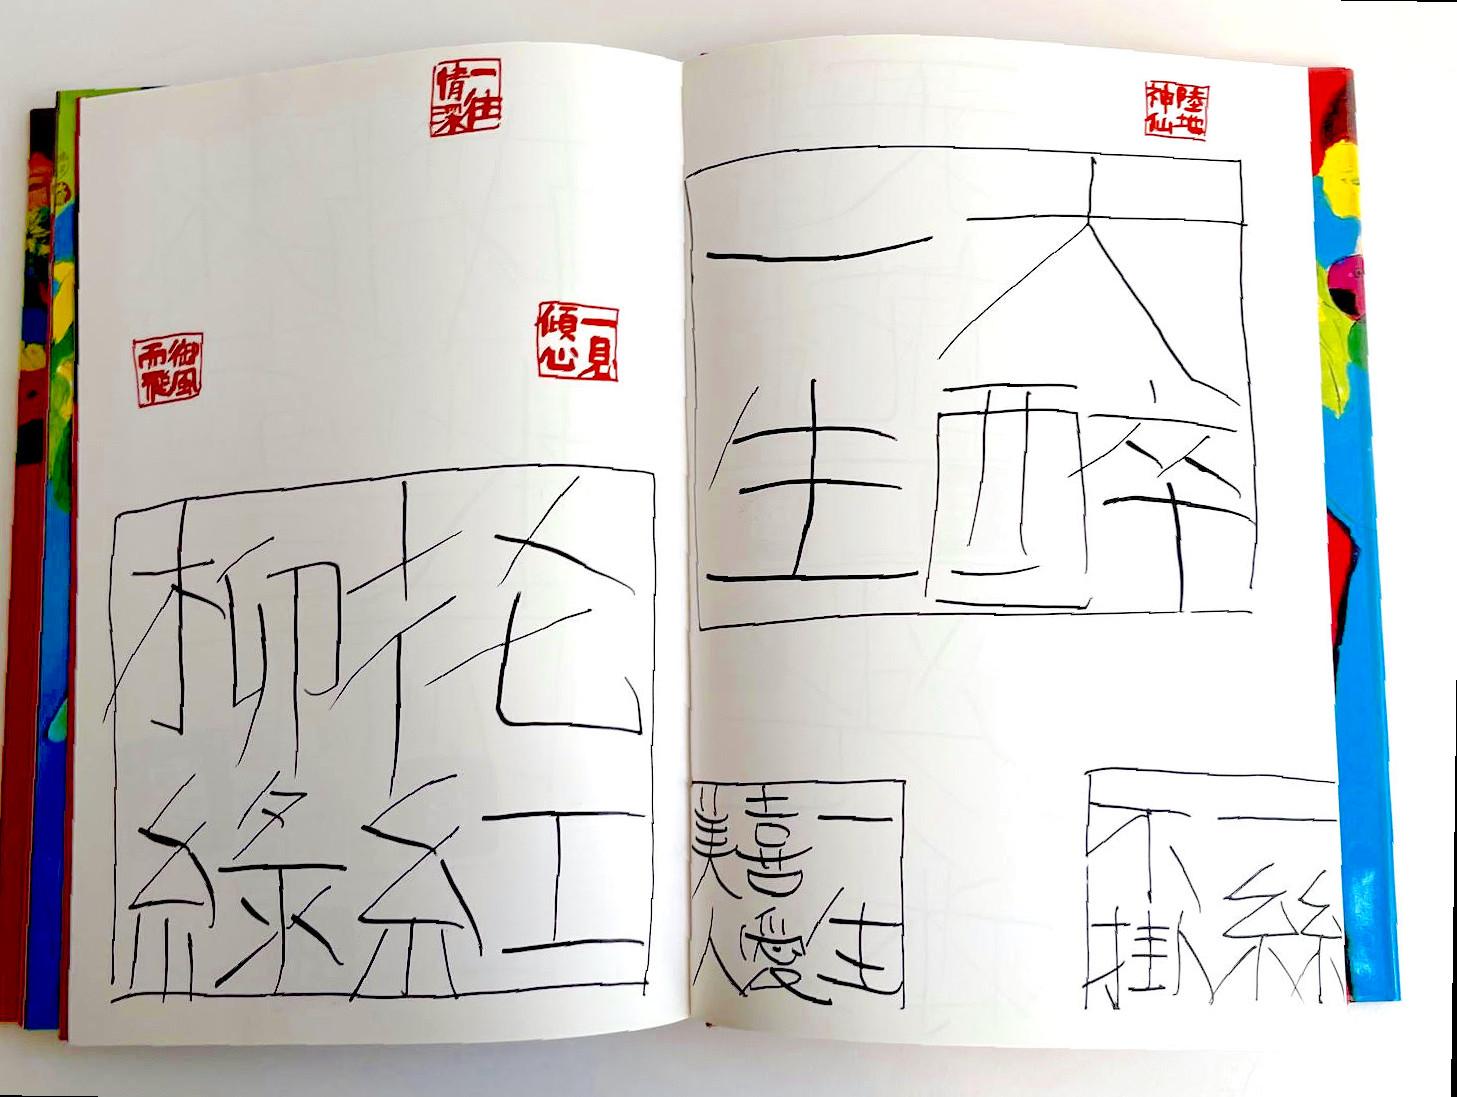 一往
情深
陸地
神仙
一見
傾心
御風
而飛
大醉
一生
花紅
柳綠
一絲
不掛
一生
喜愛
美人